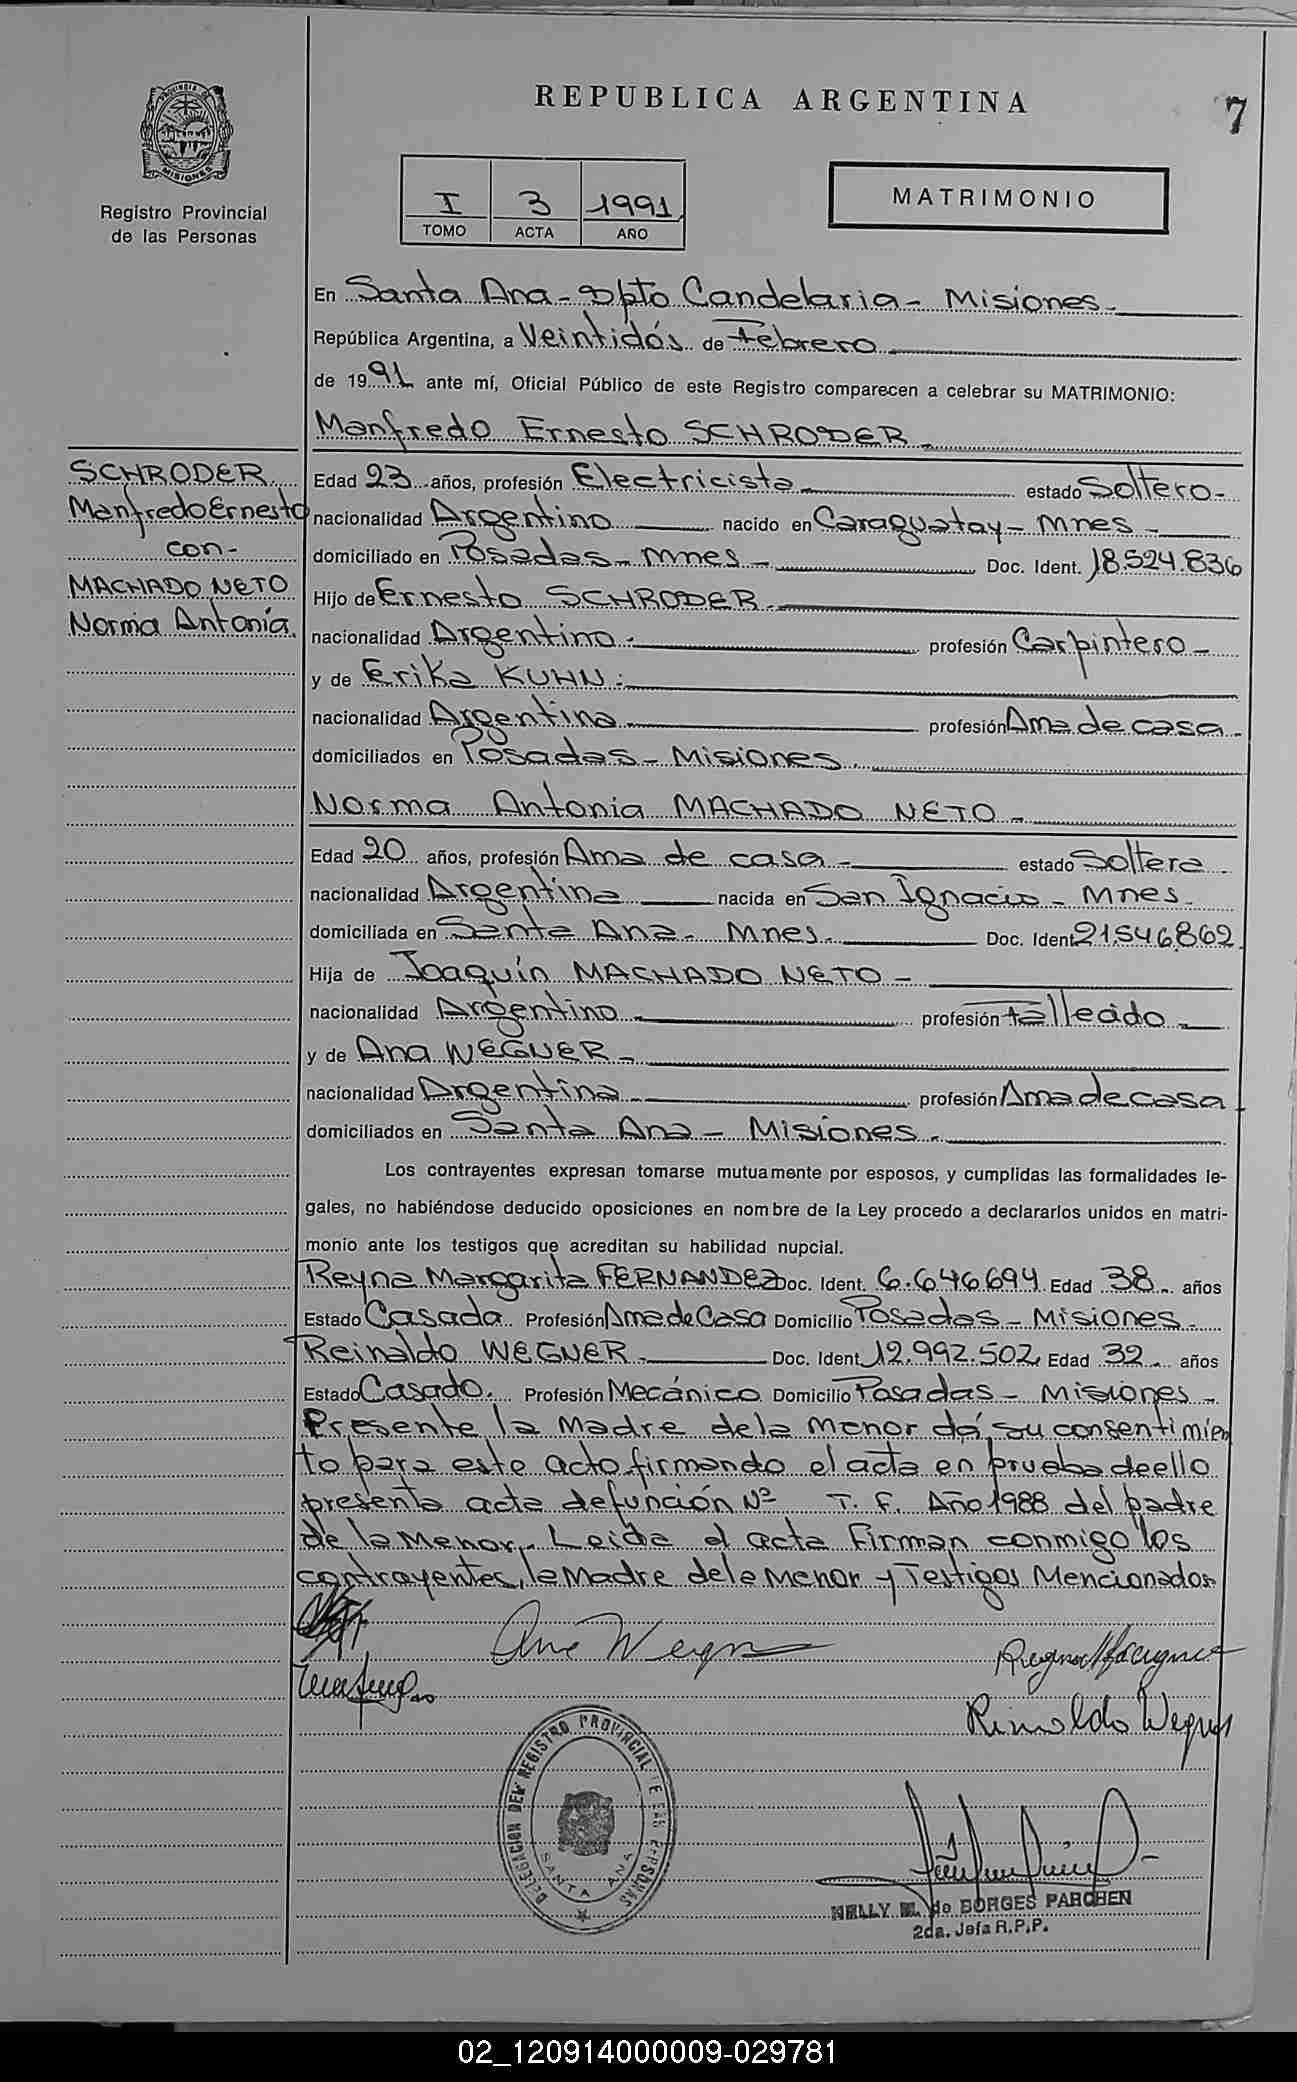 REPUBLICA ARGENTINA
7
PROVINCIA DE
MISIONES
Registro Provincial
de las Personas
I 3 1991
TOMO ACTA AÑO
MATRIMONIO
En Santa Ana - Dpto Candelaria - Misiones -
República Argentina, a Veintidós de Febrero
de 1991 ante mí, Oficial Público de este Registro comparecen a celebrar su MATRIMONIO:
Manfredo Ernesto SCHRODER -
SCHRODER
Manfredo Ernesto
con -
MACHADO NETO
Norma Antonia.
Edad 23 años, profesión Electricista estado Soltero -
nacionalidad Argentino nacido en Caraguatay - Mnes -
domiciliado en Posadas - Mnes - Doc. Ident. 18.524.836
Hijo de Ernesto SCHRODER
nacionalidad Argentino - profesión Carpintero -
y de Erika KUHN :
nacionalidad Argentina profesión Ama de casa -
domiciliados en Posadas - Misiones.
Norma Antonia MACHADO NETO -
Edad 20 años, profesión Ama de casa - estado Soltera
nacionalidad Argentina nacida en San Ignacio - Mnes -
domiciliada en Santa Ana - Mnes - Doc. Ident 21.546.862
Hija de Joaquín MACHADO NETO -
nacionalidad Argentino - profesión Fallecido -
y de Ana WEGNER -
nacionalidad Argentina - profesión Ama de casa -
domiciliados en Santa Ana - Misiones -
Los contrayentes expresan tomarse mutuamente por esposos, y cumplidas las formalidades le-
gales, no habiéndose deducido oposiciones en nombre de la Ley procedo a declararlos unidos en matri-
monio ante los testigos que acreditan su habilidad nupcial.
Reyna Margarita FERNANDEZ Doc. Ident. 6.646694 Edad 38 - años
Estado Casada Profesión Ama de Casa Domicilio Posadas - Misiones -
Reinaldo WEGNER Doc. Ident. 12.992.502 Edad 32 - años
Estado Casado. Profesión Mecánico Domicilio Posadas - Misiones -
Presente la Madre de la menor dá, su consentimien
to para este acto firmando el acta en prueba de ello
presenta acta defunción Nº T. F. Año 1988 del padre
de la Menor,. Leida el acta Firman conmigo los
contrayentes, la Madre de la Menor y Testigos Mencionados
Ana Wegner
Reinaldo Wegner
DELEGACION DEL REGISTRO PROVINCIAL DE LAS PERSONAS
SANTA ANA
NELLY M. de BORGES PARCHEN
2da. Jefa R.P.P.
02_120914000009-029781